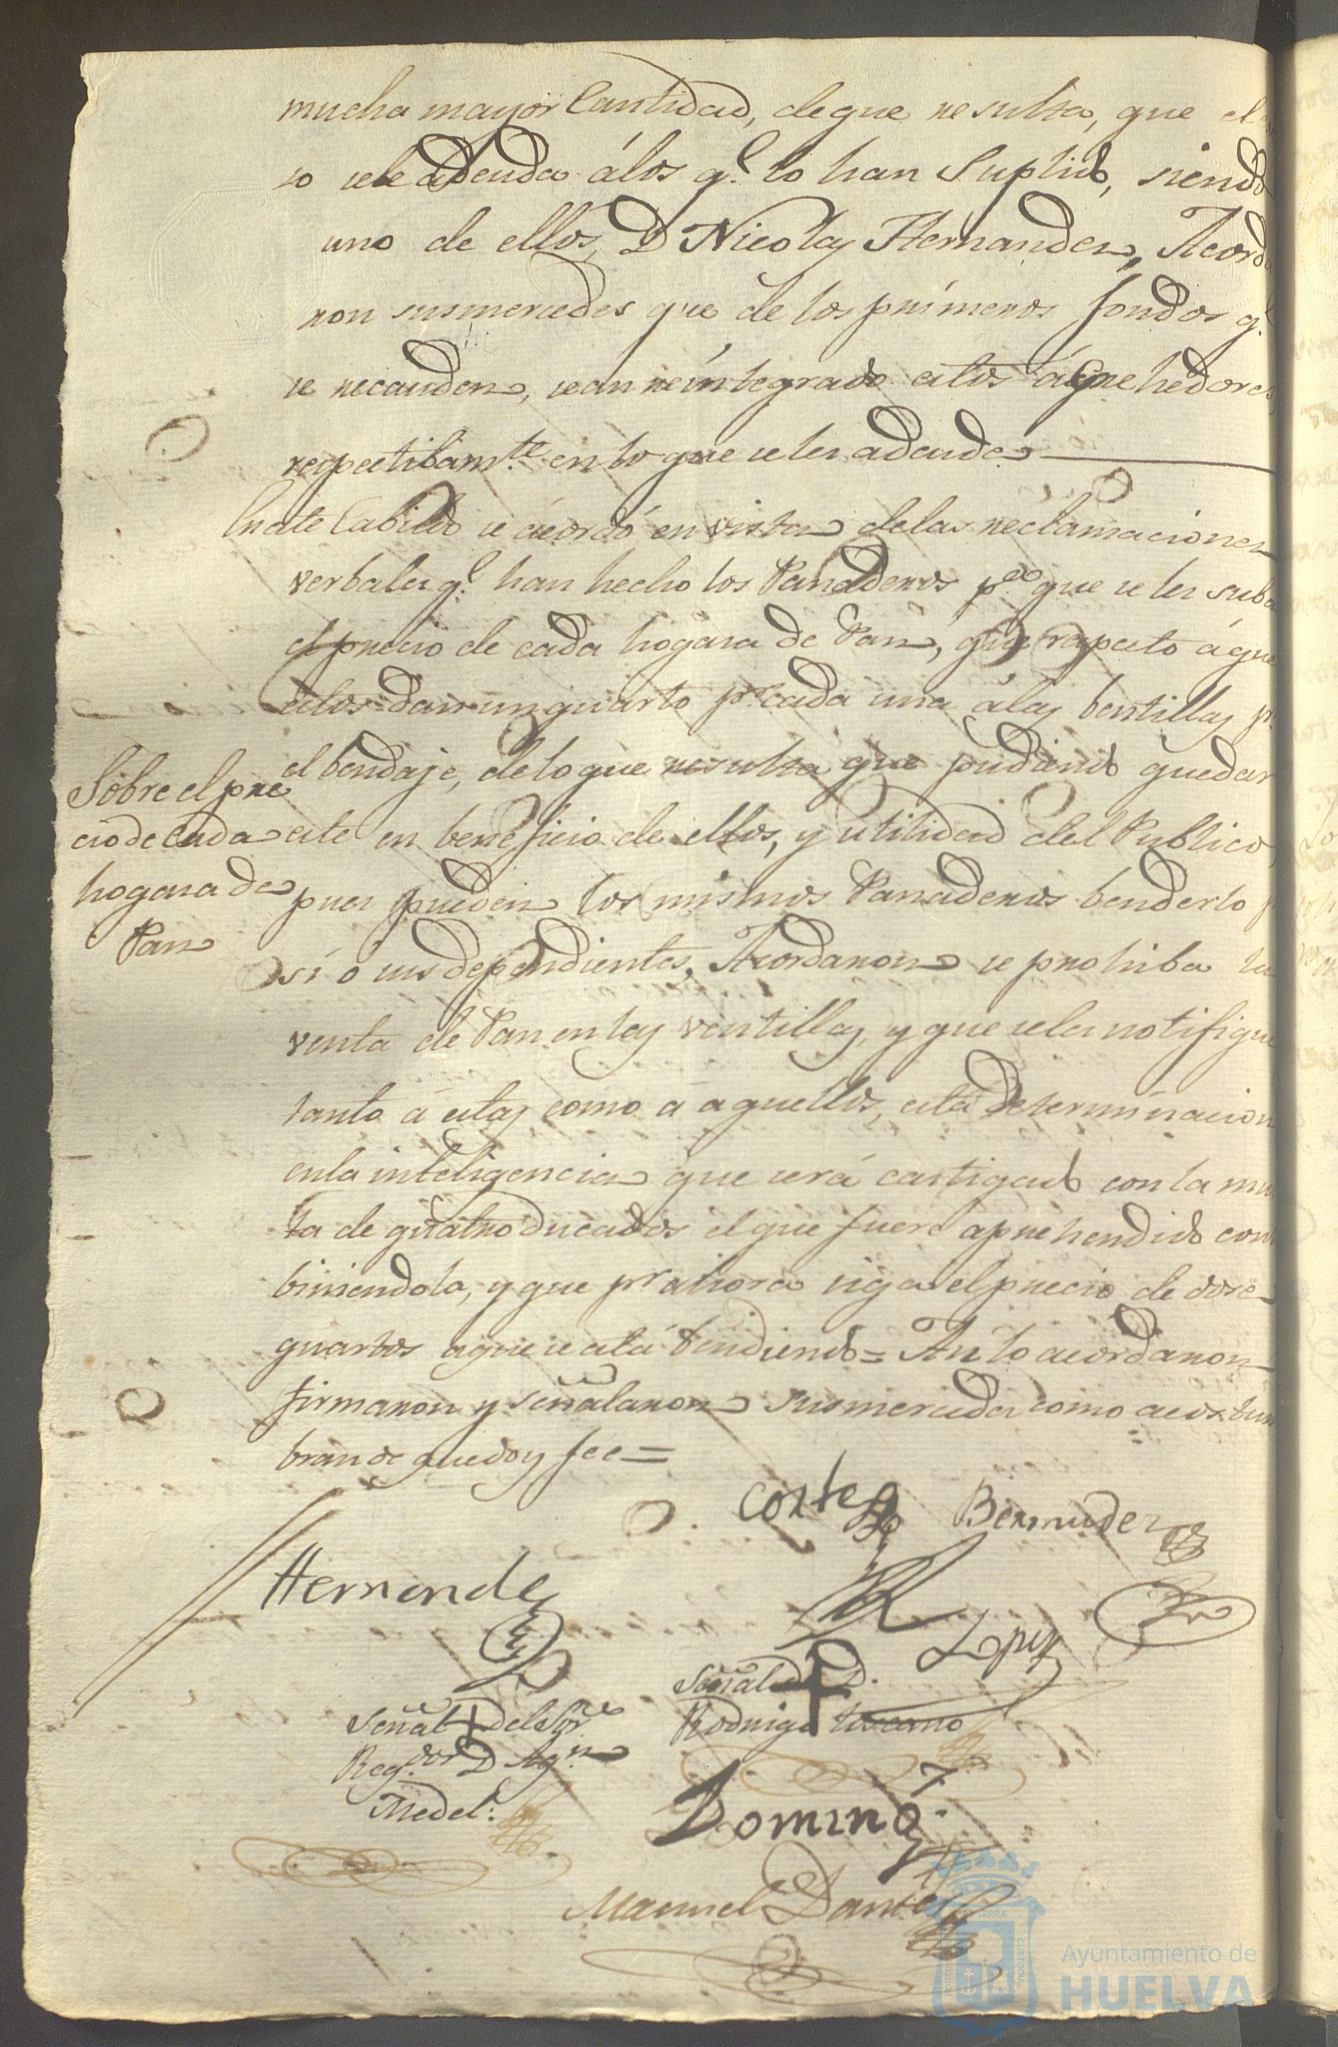 mucha mayor Cantidad, deque resulta, que el
so se le adeuda álos q.e lo han Suplido, siendo
uno de ellos, D Nicolas Hernandez, Acorda
ron susmercedes que de los primeros fondos q.e
se recauden, sean reintegrado estos acrehedores,
respectibam.te en lo que se les adeude
Eneste Cabildo se acordó en vista delas reclamaciones
verbales q.e han hecho los Panaderos p.a que se les suba
el precio de cada hogasa de Pan, que respecto á que
estos dan un quarto p.r cada una álas bentillas p.r
el bendaje, delo que resulta que pudiendo quedar
Sobre el pre
cio de cada
hogasa de
Pan
este en beneficio de ellos, y utilidad del Publico,
pues pueden los mismos Panaderos benderlo p
sí ó sus dependientes, Acordaron se prohiba la
venta de Pan en las ventillas, y que seles notifique
tanto á estas como á aquellos, esta determinacion
enla inteligencia que será castigado con la mul
ta de quatro ducados el que fuere aprehendido con
biniendola, y que p.r ahora siga el precio de dose
quartos aque se está bendiendo = Asi lo acordaron
firmaron y señalaron susmercedes como acostum
bran de que doy fee =
Cortes Bermudez
Hernandez
Lopez
Señal de D.
Rodrigo Toscano
Señal del Sor.
Reg.dor D Ag.n
Medel.
Doming.
Manuel Dante
Ayuntamiento de
HUELVA